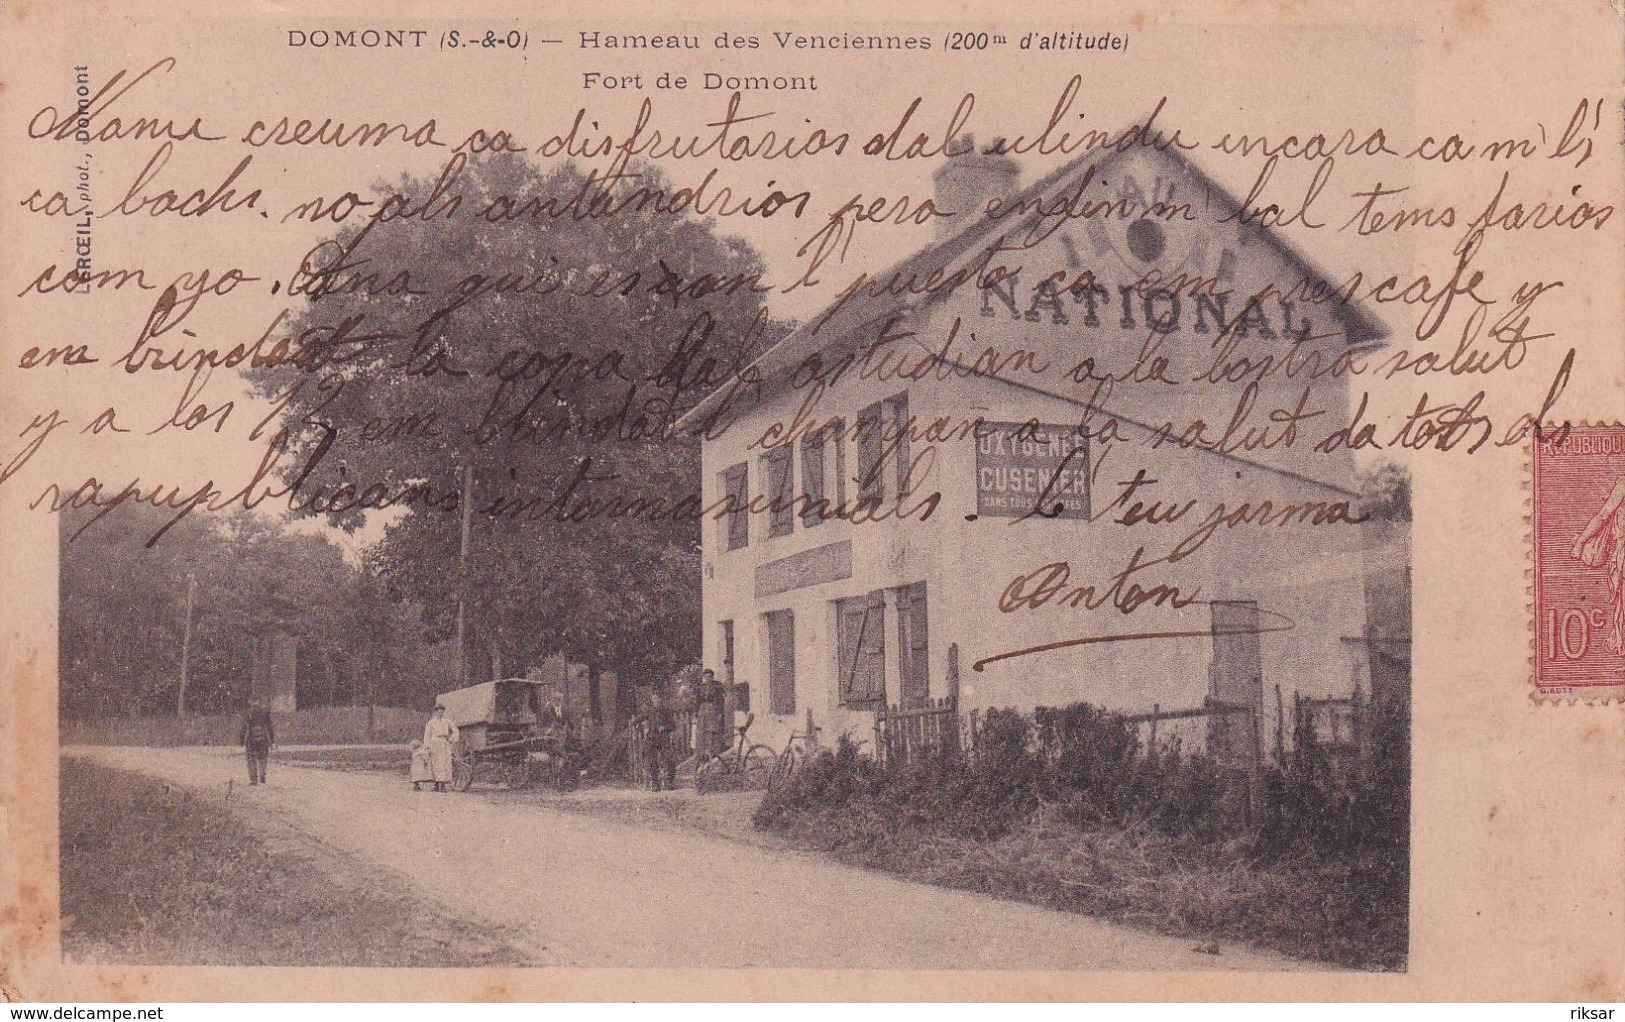 DOMONT (S.-&-O) — Hameau des Venciennes (200m d'altitude)
Fort de Domont
LEROEIL, phot., Domont
creuma ca disfrutarias dal ulindu encara ca m'li
ca bachi. no als antandrios pero enfin m'bal tems farias
com yo. Ana qui es van l'puesto ca em pres cafe y
em brindat la copa dal astudian a la bostra salut
y a las 12 em brindat l'champan a la salut da tots als
rapupblicans intarnasiunials. l'teu jarma
Anton
NATIONAL
OXYGENÉE
CUSENIER
DANS TOUS
REPUBLIQUE
10c
riksar